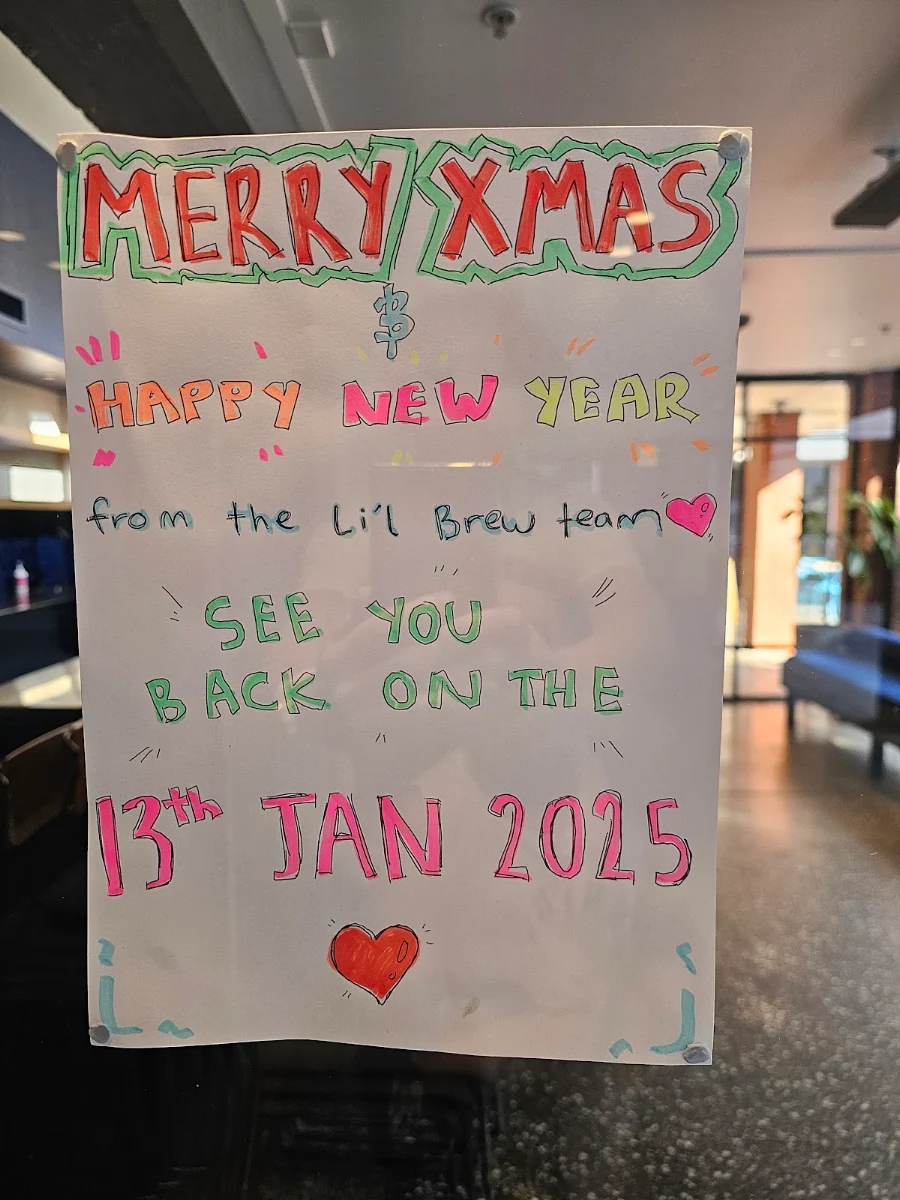 MERRY XMAS
&
HAPPY NEW YEAR
from the Li'l Brew team
SEE YOU
BACK ON THE
13th JAN 2025